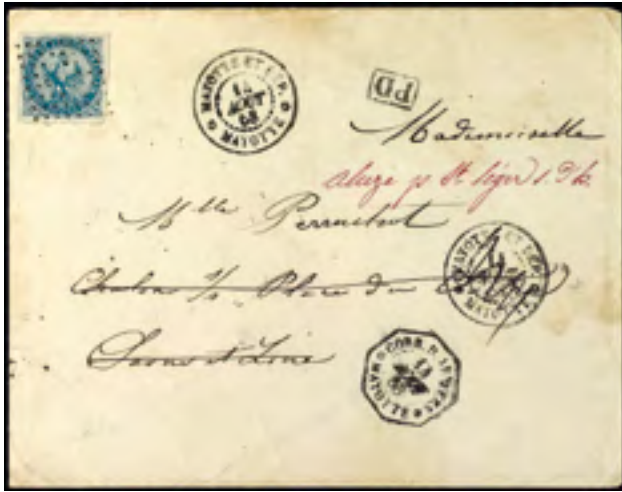 MAYOTTE ET DÉP. MAYOTTE
14 AOUT 68
PD
Mademoiselle
aluze p St léger s. Dh.
Mlle Perruchot
Chalon s/s Place du
Saone et Loire
MAYOTTE ET DÉP.
MAYOTTE
CORR. D. ARMÉES
MAYOTTE